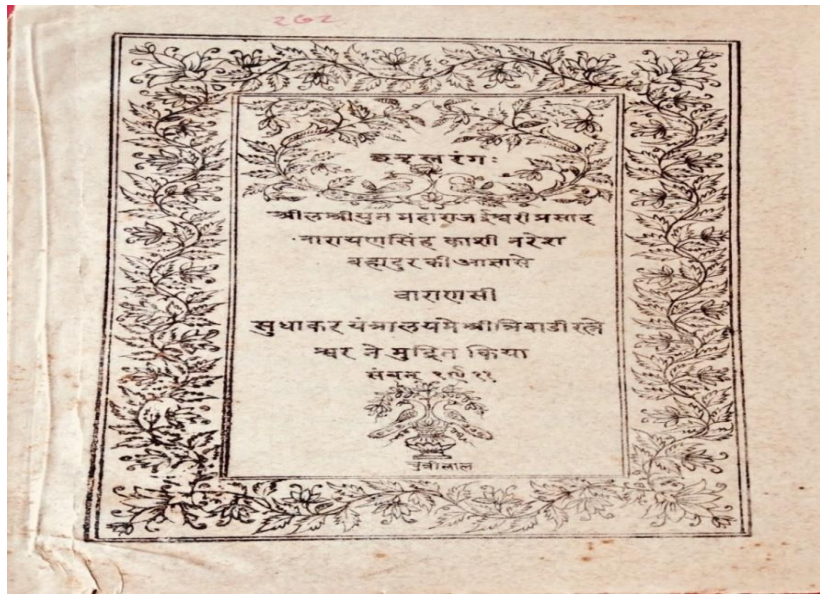 २७२
श्रीलश्रीयुत महाराज ईश्वरीप्रसाद
नारायणसिंह काशी नरेश
बहादुर की आज्ञासे
वाराणसी
सुधाकर यंत्रालयमे श्री त्रिवाडी रत्ने
श्वर ने मुद्रित किया
संवत १९११